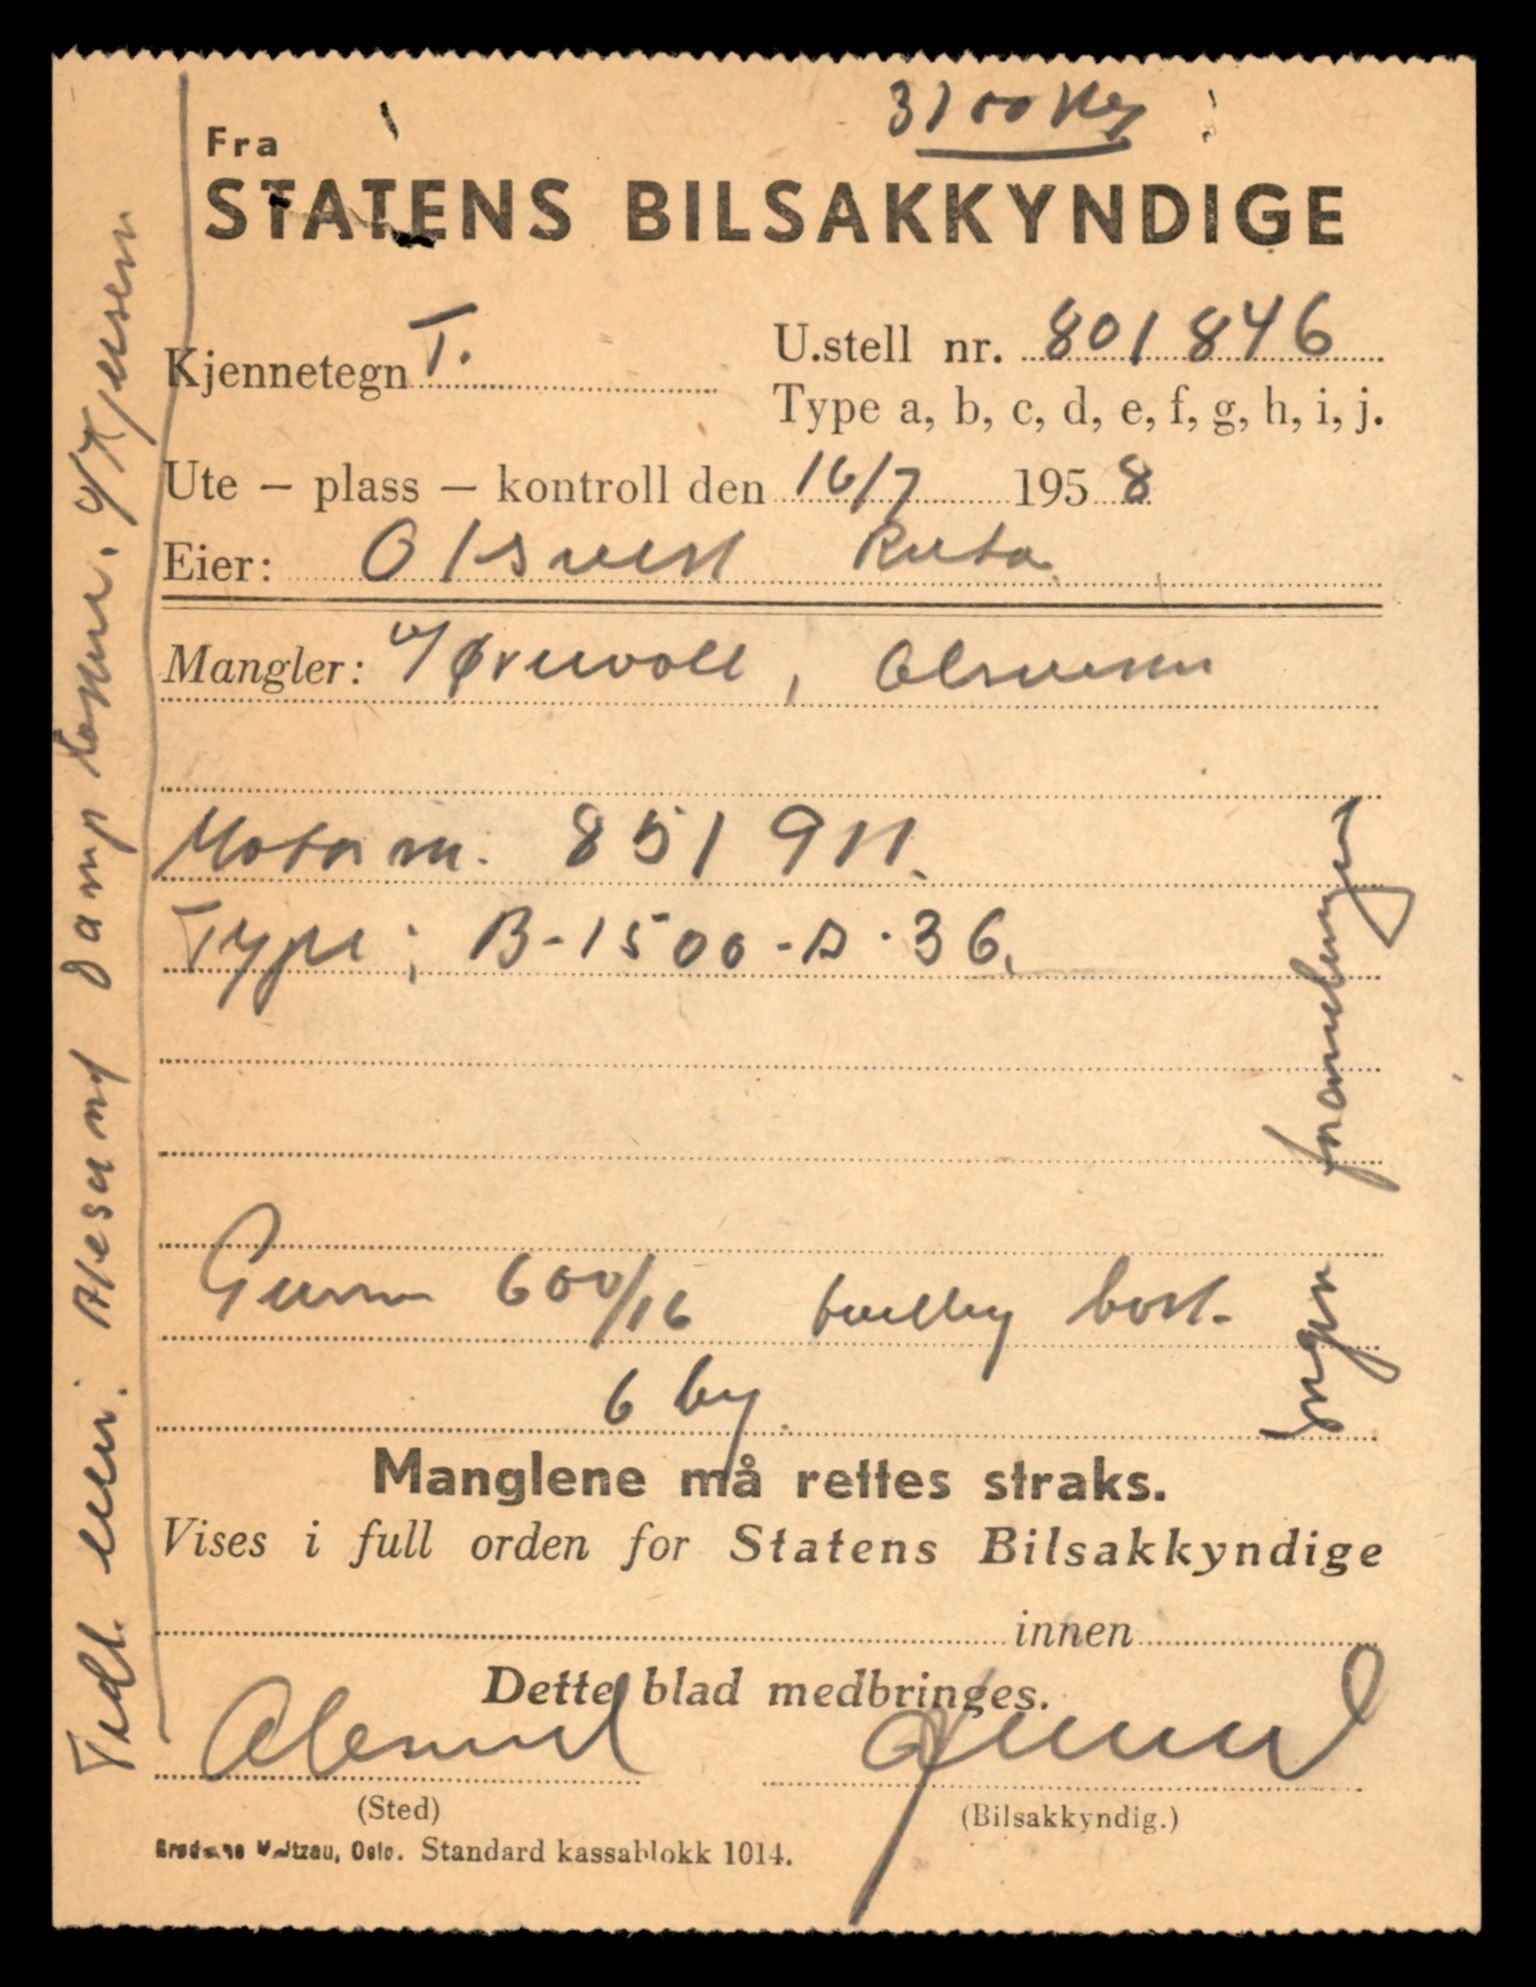 3100 Kg
Fra
STATENS BILSAKKYNDIGE
Kjennetegn T.
U.stell nr. 801846
Type a, b, c, d, e, f, g, h, i, j.
Ute – plass – kontroll den 16/7 1958
Eier: Olsvest Ruta
Mangler: v/ Ørnvoll, Olsvesten
Motor nr. 851911.
Type: B-1500-A-36.
Gummi 600/16 bak
6 by
Ingen forandringer
Manglene må rettes straks.
Vises i full orden for Statens Bilsakkyndige
innen
Dette blad medbringes.
Ålesund
(Sted)
(Bilsakkyndig.)
Brødrene Waitzau, Oslo. Standard kassablokk 1014.
Tidl. eier: Ålesund Damp